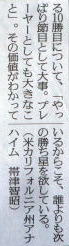 る10勝目について、「やっ
ぱり節目として大事。プレ
ーヤーとしても大きなこ
と」。その価値がわかって
いるからこそ、誰よりも次
の勝ち星を欲している。
（米カリフォルニア州アナ
ハイム　帯津智昭）